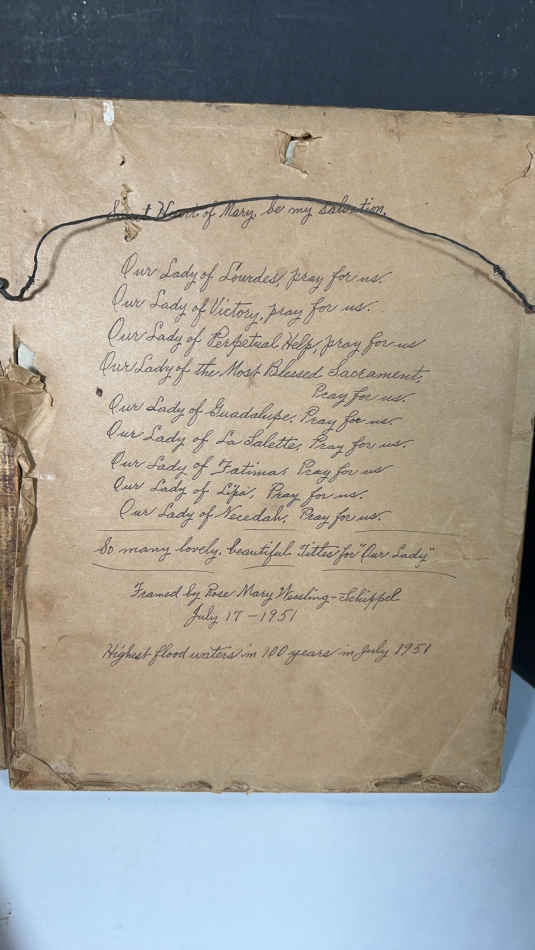 Sweet Heart of Mary, be my salvation.
Our Lady of Lourdes, pray for us.
Our Lady of Victory, pray for us.
Our Lady of Perpetual Help, pray for us
Our Lady of the Most Blessed Sacrament,
Pray for us.
Our Lady of Guadalupe, Pray for us.
Our Lady of La Salette, Pray for us.
Our Lady of Fatima, Pray for us
Our Lady of Lipa, Pray for us.
Our Lady of Necedah, Pray for us.
So many lovely, beautiful Titles for "Our Lady"
Framed by Rose Mary Wessling-Schippel
July 17-1951
Highest flood waters in 100 years in July 1951